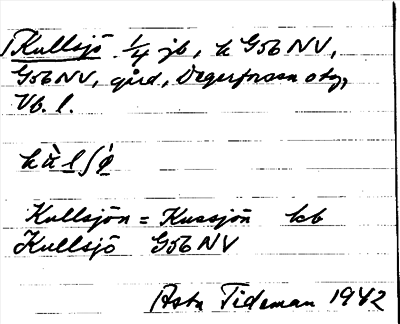 Kullsjö 1/4 jb, k G56NV,
G56NV, gård, Degerforssn
Vb. l.
Kullsjön = Kussjön kb
Kullsjö G56NV
Asta Tideman 1942